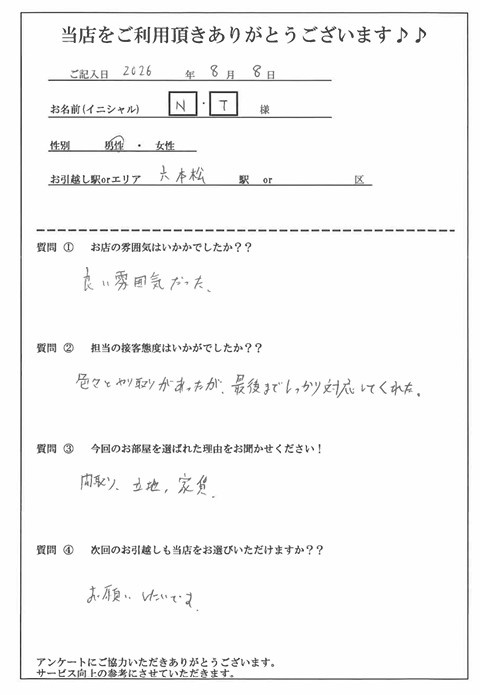 当店をご利用頂きありがとうございます♪♪
ご記入日 2026 年 8 月 8 日
お名前(イニシャル) N ・ T 様
性別 男性 ・ 女性
お引越し駅orエリア 六本松 駅 or 区
質問 ① お店の雰囲気はいかかでしたか??
良い雰囲気だった。
質問 ② 担当の接客態度はいかがでしたか??
色々とやり取りがあったが、最後までしっかり対応してくれた。
質問 ③ 今回のお部屋を選ばれた理由をお聞かせください!
間取り、立地、家賃
質問 ④ 次回のお引越しも当店をお選びいただけますか??
お願いしたいです。
アンケートにご協力いただきありがとうございます。
サービス向上の参考にさせていただきます。